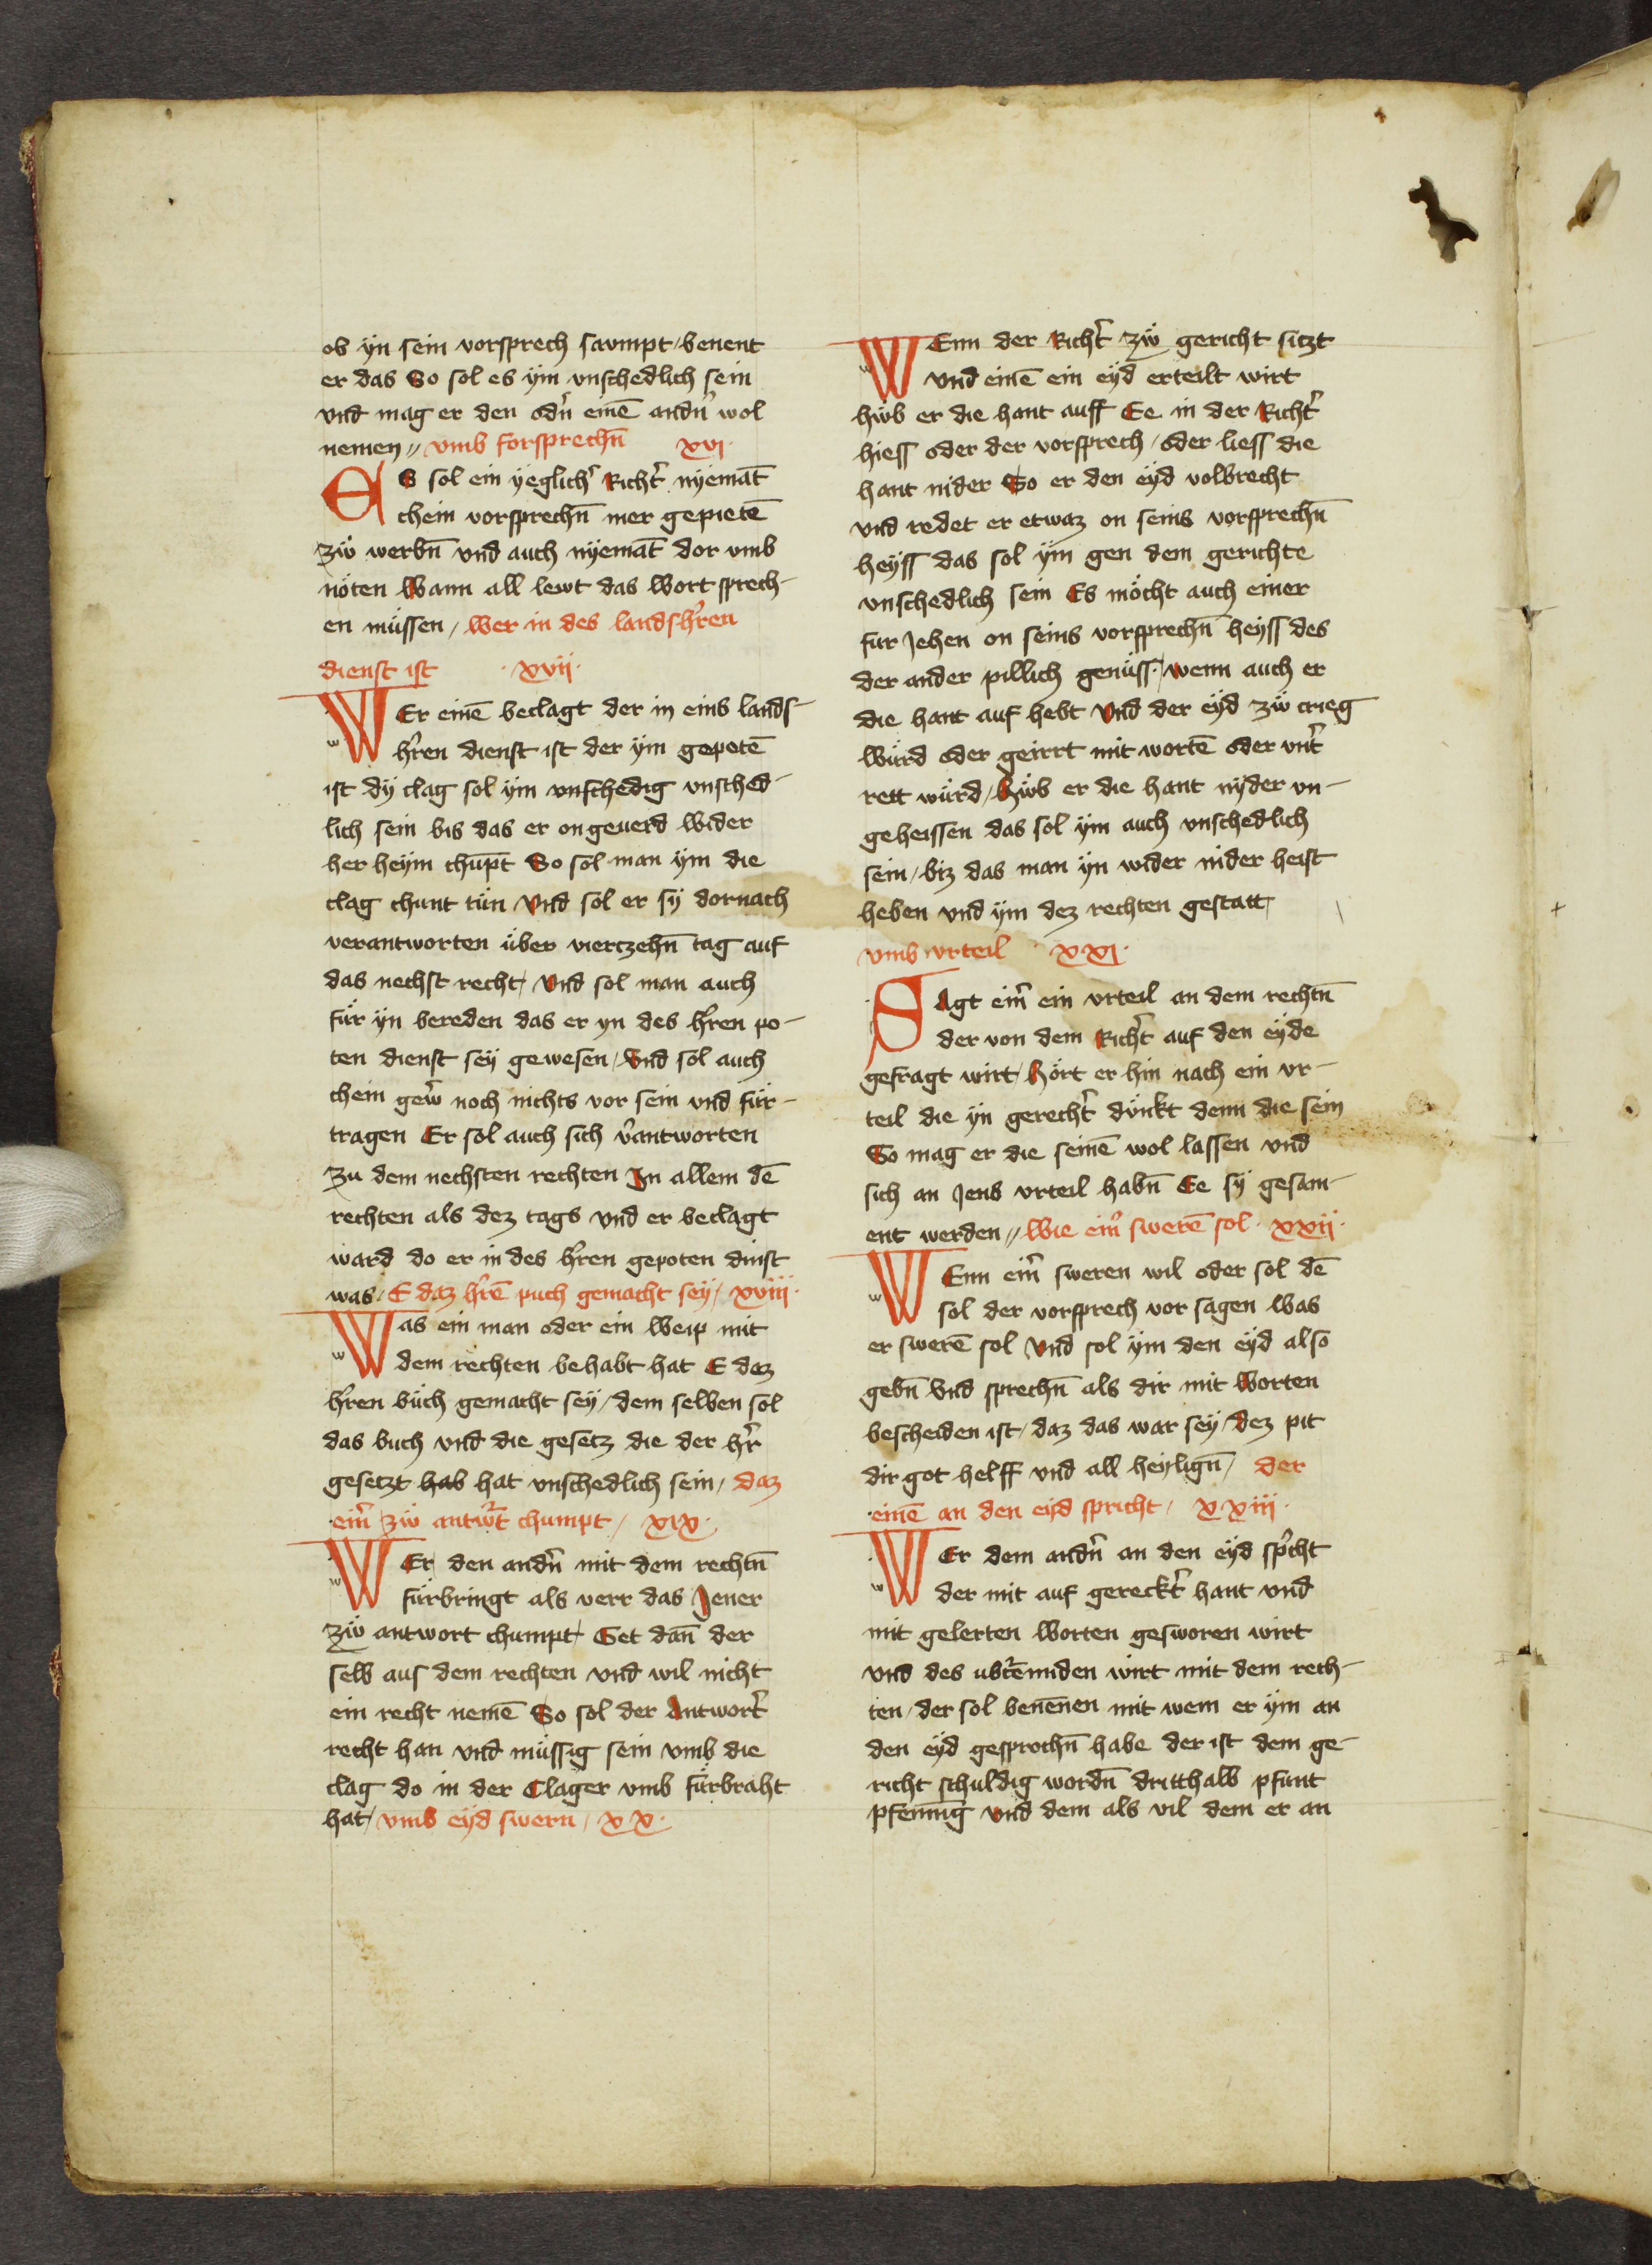 ob ÿn sein vorsprech savmpt / benent
er das So sol es ÿm vnschedlich sein
vnd mag er den odn̄ einē andn̄ wol
nemen // vmb forsprechn̄ xvj ·
Es sol ein ÿeglichr̄ Richtr̄ nÿemāt
chein vorsprechn̄ mer gepietē
zẅ werbn̄ vnd auch nÿemāt dor vmb
nöten Wann all lewt das Wort sprech-
en müssen / Wer in des landshr̄en
dienst ist · xvij ·
WEr einē beclagt der in eins lands-
hr̄en dienst ist der ÿm gepotē
ist dÿ clag sol ÿm vnschedig vnsched-
lich sein bis das er on geuerd Wider
her heÿm chūpt So sol man ÿm die
clag chunt tün Vnd sol er sÿ dornach
verantworten über vierczehn̄ tag auf
das nechst recht / Vnd sol man auch
für ÿn bereden das er yn des hr̄en po-
ten dienst seÿ gewesen / Vnd sol auch
chein gew̄ noch nichts vor sein vnd für-
tragen Er sol auch sich v̄antworten
zu dem nechsten rechten In allem dē
rechten als dez tags vnd er beclagt
ward do er in des hr̄en gepoten dinst
was / E daz hr̄ē puch gemacht seÿ / xviij ·
Was ein man oder ein Weip mit
dem rechten behabt hat E daz
hr̄en büch gemacht seÿ / dem selben sol
das buch vnd die gesetz die der hr̄
gesetzt hab hat vnschedlich sein / daz
ein̄ zẅ antw̄t chumpt / xix ·
WEr den andn̄ mit dem rechtn̄
fürbringt als verr das Jener
zẅ antwort chumpt / Get dan̄ der
selb aus dem rechten vnd wil nicht
ein recht nemē So sol der Antwortr̄
recht han vnd müssig sein vmb die
clag do in der Clager vmb fürbraht
hat / vmb eÿd swern / xx ·
WEnn der Richtr̄ zẅ gericht sitzt
vnd einē ein eÿd erteilt wirt
hẅb er die hant auff Ee in der Richtr̄
hiess oder der vorsprech / oder liess die
hant nider So er den eÿd volbrecht
vnd redet er etwaz on seins vorsprechn̄
heÿss das sol ÿm gen dem gerichte
vnschedlich sein Es möcht auch einer
fur Jehen on seins vorsprechn̄ heÿss des
der ander pillich genüss · / wenn auch er
die hant auf hebt Vnd der eÿd zẅ crieg
würd oder geirrt mit wortē oder vntr̄
rett würd / hẅb er die hant nÿder vn-
geheissen das sol ÿm auch vnschedlich
sein / biz das man ÿn wider nider heist
heben vnd ÿm dez rechten gestatt /
vmb vrteil · xxj ·
SAgt ein̄ ein vrteil an dem rechtn̄
der von dem Richtr̄ auf den eÿde
gefragt wirt / hört er hin nach ein vr-
teil die ÿn gerechtr̄ dünkt denn die sein
So mag er die seinē wol lassen vnd
sich an Jens vrteil habn̄ Ee sÿ gesam-
ent werden // Wie ein̄ swerē sol · xxij ·
WEnn ein̄ sweren wil oder sol dē
sol der vorsprech vor sagen Was
er swerē sol Vnd sol ÿm den eÿd also
gebn̄ Vnd sprechn̄ als dir mit Worten
bescheiden ist / daz das war seÿ / dez pit
dir got helff vnd all heÿlign̄ / der
einē an den eÿd spricht / xxiij ·
WEr dem andn̄ an den eÿd sp̄cht
der mit auf gerecktr̄ hant vnd
mit gelerten Worten gesworen wirt
vnd des ubr̄enniden wirt mit dem rech-
ten / der sol benēnen mit wem er ÿm an
den eÿd gesprochn̄ habe der ist dem ge-
richt schuldig wordn̄ dritthalb pfunt
pfennīg Vnd dem als vil dem er an